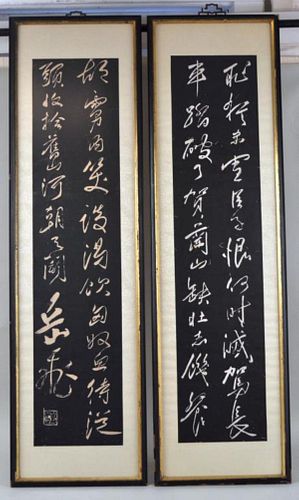 耻猶未雪臣子恨何時滅駕長
車踏破了賀蘭山缺壯志飢餐
胡虜肉笑談渴飲匈奴血待從
頭收拾舊山河朝天闕
岳飛